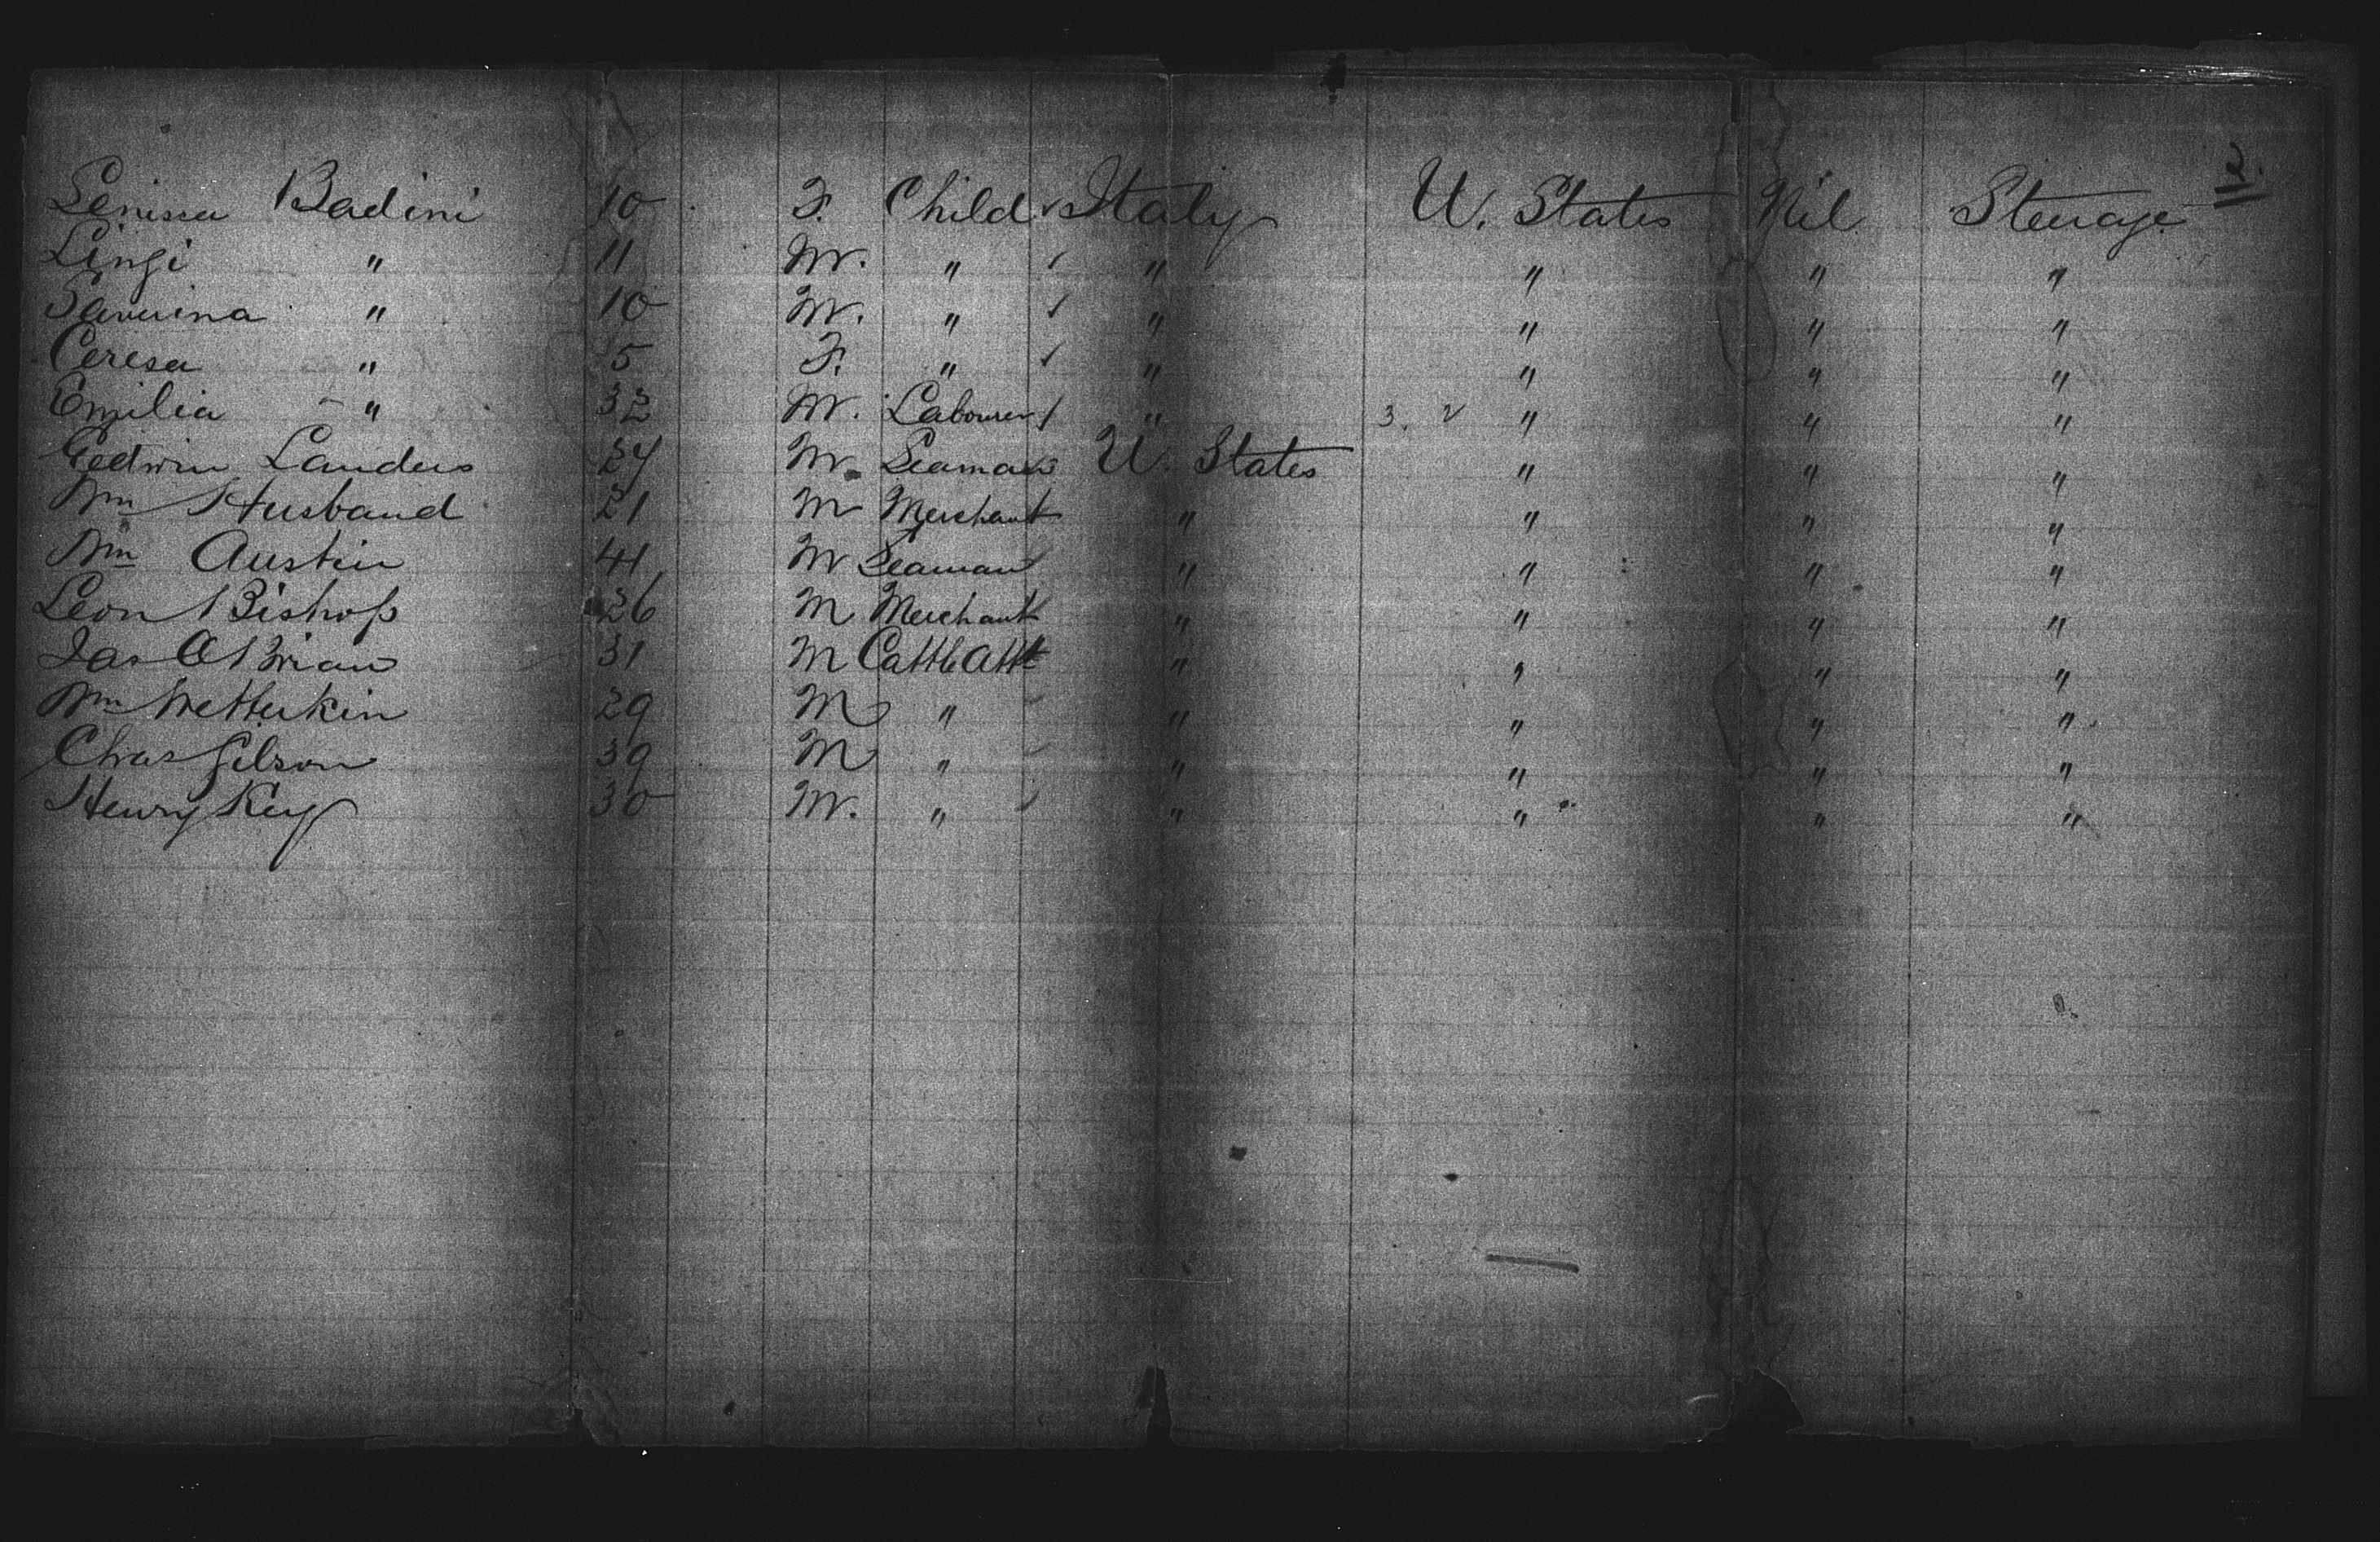 2.
Lenissa Badini 10 F. Child Italy U. States Nil Steerage
Lingi " 11 M. " " " " "
Saverina " 10 M. " " " " "
Ceresa " 5 F. " " " " "
Emilia " 32 M. Labourer " 3. 2 " " "
Gedwin Landers 27 M. Seaman U. States " " "
Wm Husband 21 M Merchant " " " "
Wm Austin 41 M Seaman " " " "
Leon Bishop 26 M Merchant " " " "
Jas O'Brian 31 M Cattle Attt " " " "
Wm Wetterkin 29 M " " " " "
Chas Gilson 39 M " " " " "
Henry Key 30 M. " " " " "